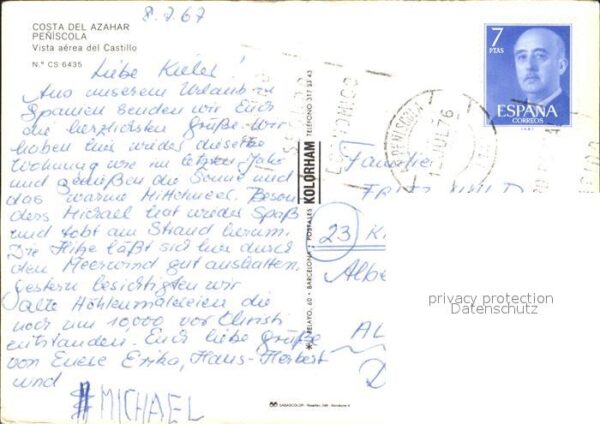 8.7.67
COSTA DEL AZAHAR
PEÑISCOLA
Vista aérea del Castillo
N.º CS 6435
Liebe Kieler!
Aus unserem Urlaub in
Spanien senden wir Euch
die herzlichsten Grüße. Wir
haben hier wieder dieselbe
Wohnung wie im letzten Jahr
und genießen die Sonne und
das warme Mittelmeer. Beson
ders Michael hat wieder Spaß
und tobt am Strand herum.
Die Hitze läßt sich hier durch
den Meerwind gut aushalten.
Gestern besichtigten wir
alte Höhlenmalereien die
noch um 10000 vor Christi
entstanden. Euch liebe Grüße
von Eurer Erika, Hans-Herbert
und
MICHAEL
POSTALES KOLORHAM TELEFONO 317 53 43
PELAYO, 60 - BARCELONA
7
PTAS
ESPAÑA
CORREOS
PEÑISCOLA
JUL 76
Familie
FRITZ
23 K
Albe
AL
D
privacy protection
Datenschutz